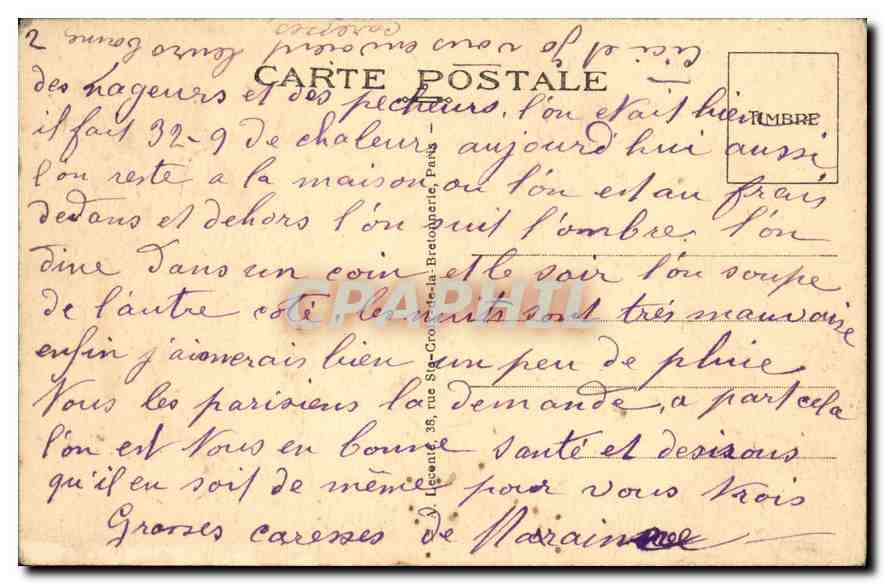 2
CARTE POSTALE
TIMBRE
des nageurs et des pecheurs, l'on etait bien
il fait 32-9 de chaleur aujourd'hui aussi
l'on reste a la maison ou l'on est au frais
dedans et dehors l'on suit l'ombre. l'on
dine dans un coin et le soir l'on soupe
de l'autre coté, les nuits sont très mauvaise
enfin j'aimerais bien un peu de pluie
Nous les parisiens la demande, a part cela
l'on est Nous en bonne santé et desirons
qu'il en soit de même pour vous trois
Grosses caresses de Maraine
Cici et Jo vous envoient leurs bonne
caresses
A. Leconte, 38, rue Ste-Croix-de-la-Bretonnerie, Paris
CPAPHIL